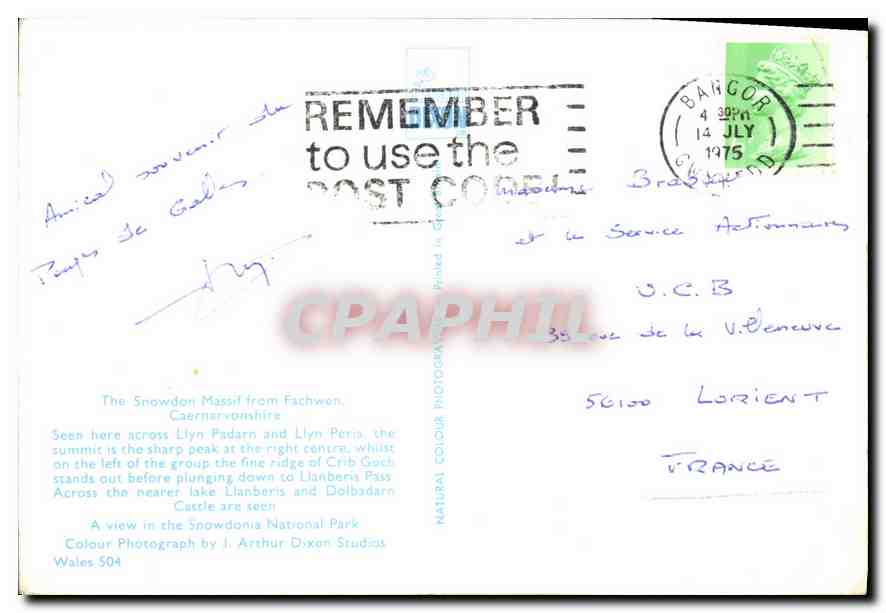 Amical souvenir du
Pays de Galles
REMEMBER
to use the
POST CODE!
BANGOR
4 30PM
14 JLY
1975
GWYNEDD
Madame
et le Service Actionnaires
U.C.B
39 rue de la Villeneuve
56100 LORIENT
FRANCE
CPAPHIL
NATURAL COLOUR PHOTOGRA
Printed in
The Snowdon Massif from Fachwen,
Caernarvonshire
Seen here across Llyn Padarn and Llyn Peris, the
summit is the sharp peak at the right centre, whilst
on the left of the group the fine ridge of Crib Goch
stands out before plunging down to Llanberis Pass.
Across the nearer lake Llanberis and Dolbadarn
Castle are seen
A view in the Snowdonia National Park
Colour Photograph by J. Arthur Dixon Studios
Wales 504